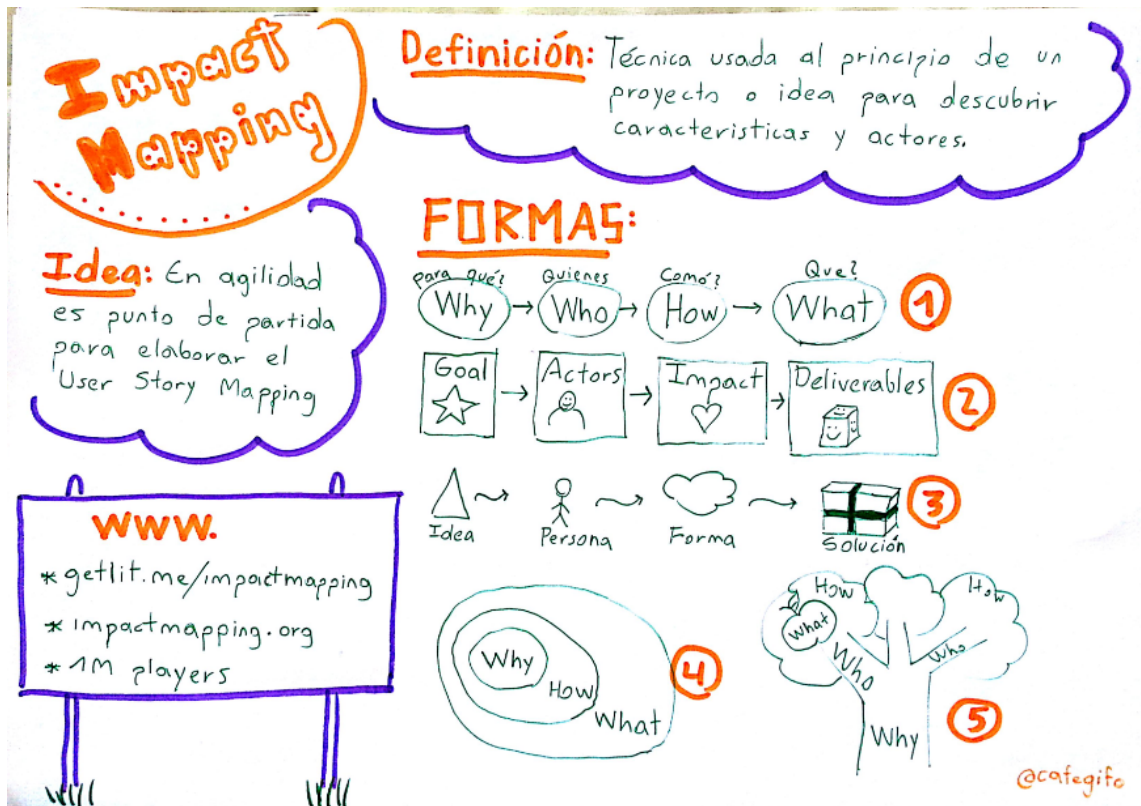 Impact
Mapping
Definición: Técnica usada al principio de un
proyecto o idea para descubrir
caracteristicas y actores.
Idea: En agilidad
es punto de partida
para elaborar el
User Story Mapping
FORMAS:
para qué? Quienes Comó? Que?
Why Who How What 1
Goal Actors Impact Deliverables 2
3
Idea Persona Forma Solución
Why
How
What
4
How How
What
Who Who
Why
5
www.
* getlit.me/impactmapping
* impactmapping.org
* 1M players
@cafegifo